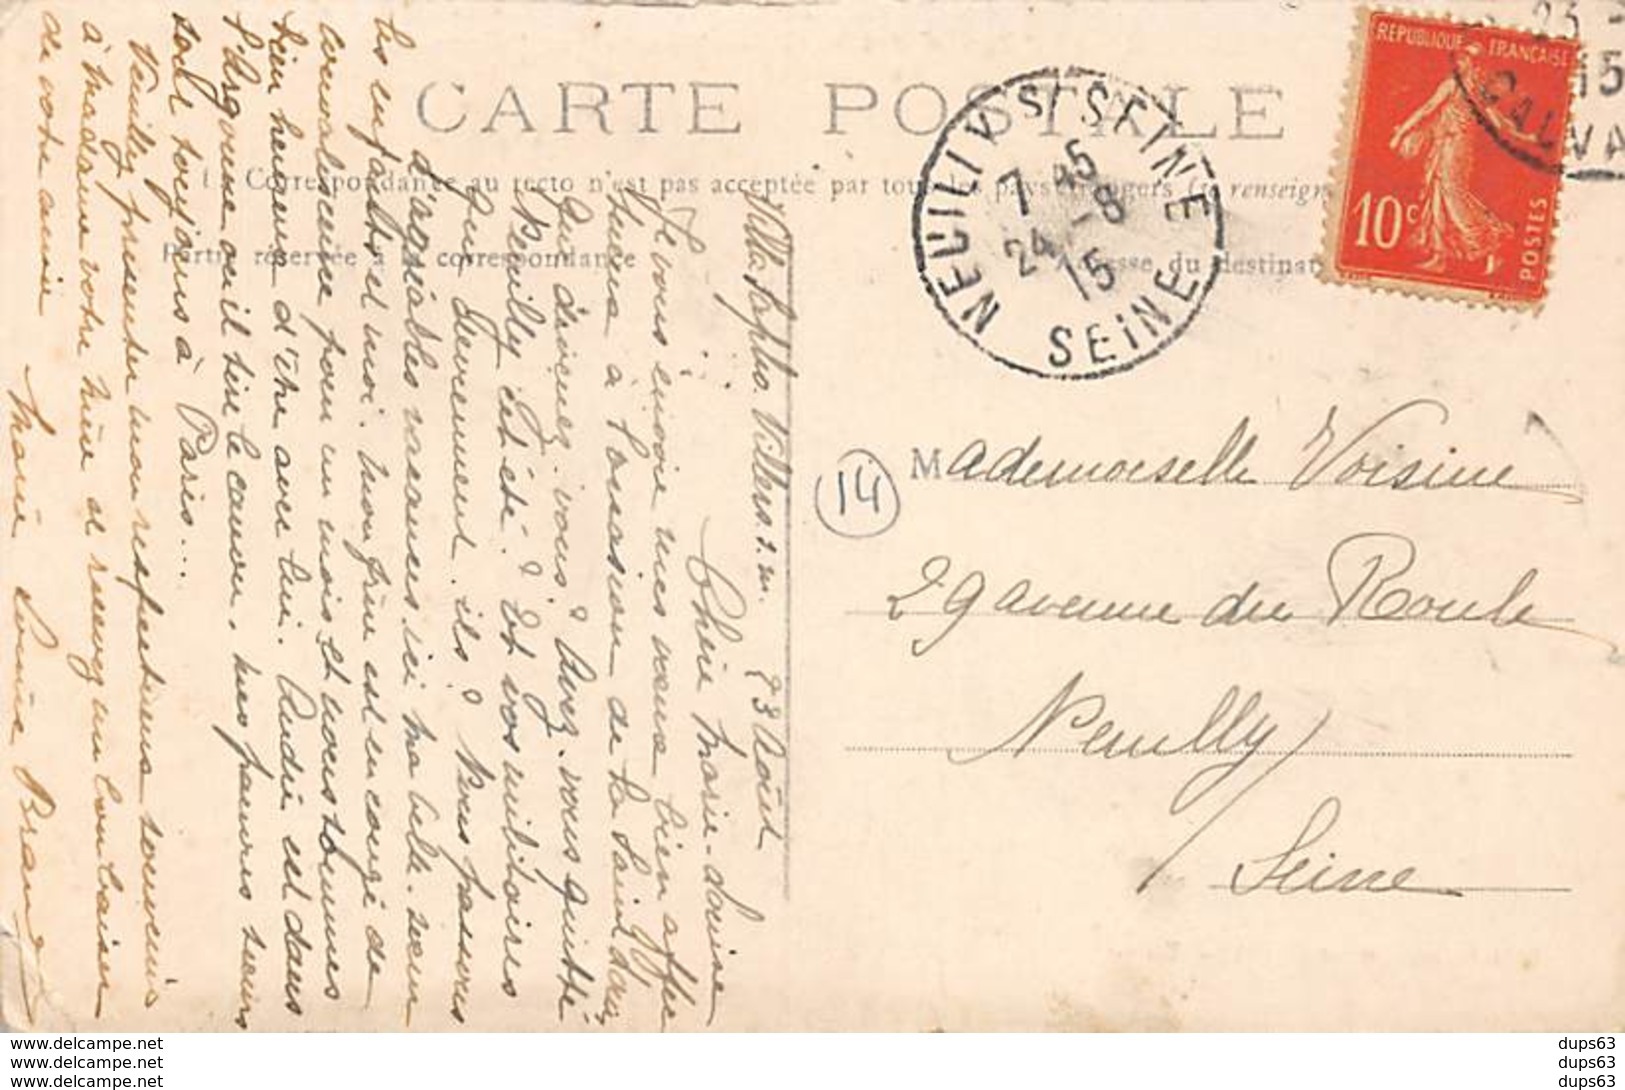 CARTE POSTALE
Correspondance au recto n'est pas acceptée par tous les pays étrangers (se renseigner
Partie réservée à la correspondance
Adresse du destinat
REPUBLIQUE FRANÇAISE
10c
POSTES
23 -
15
CALVA
NEUILLY S/ SEINE
7 45
24 - 8
15
SEINE
14
Mademoiselle Voisine
29 avenue du Roule
Neuilly
Seine
Villa Sapho. Villers. s. m. 23 Août
Chère Marie-Louise
Je vous envoie mes vœux bien affec
tueux à l'occasion de la Saint Louis
Que devenez-vous? Avez-vous quitté
Neuilly cet été? Et vos militaires
que deviennent-ils? Nous passons
d'agréables vacances ici ma belle-sœur
les enfants et moi. Mon frère est en congé de
convalescence pour un mois et nous sommes
bien heureux d'être avec lui. André est dans
l'Argonne où il tire le canon. Mes pauvres sœurs
sont toujours à Paris...
Veuillez présenter mon respectueux souvenir
à Madame votre mère et recevez un bon baiser
de votre amie
Marie Louise